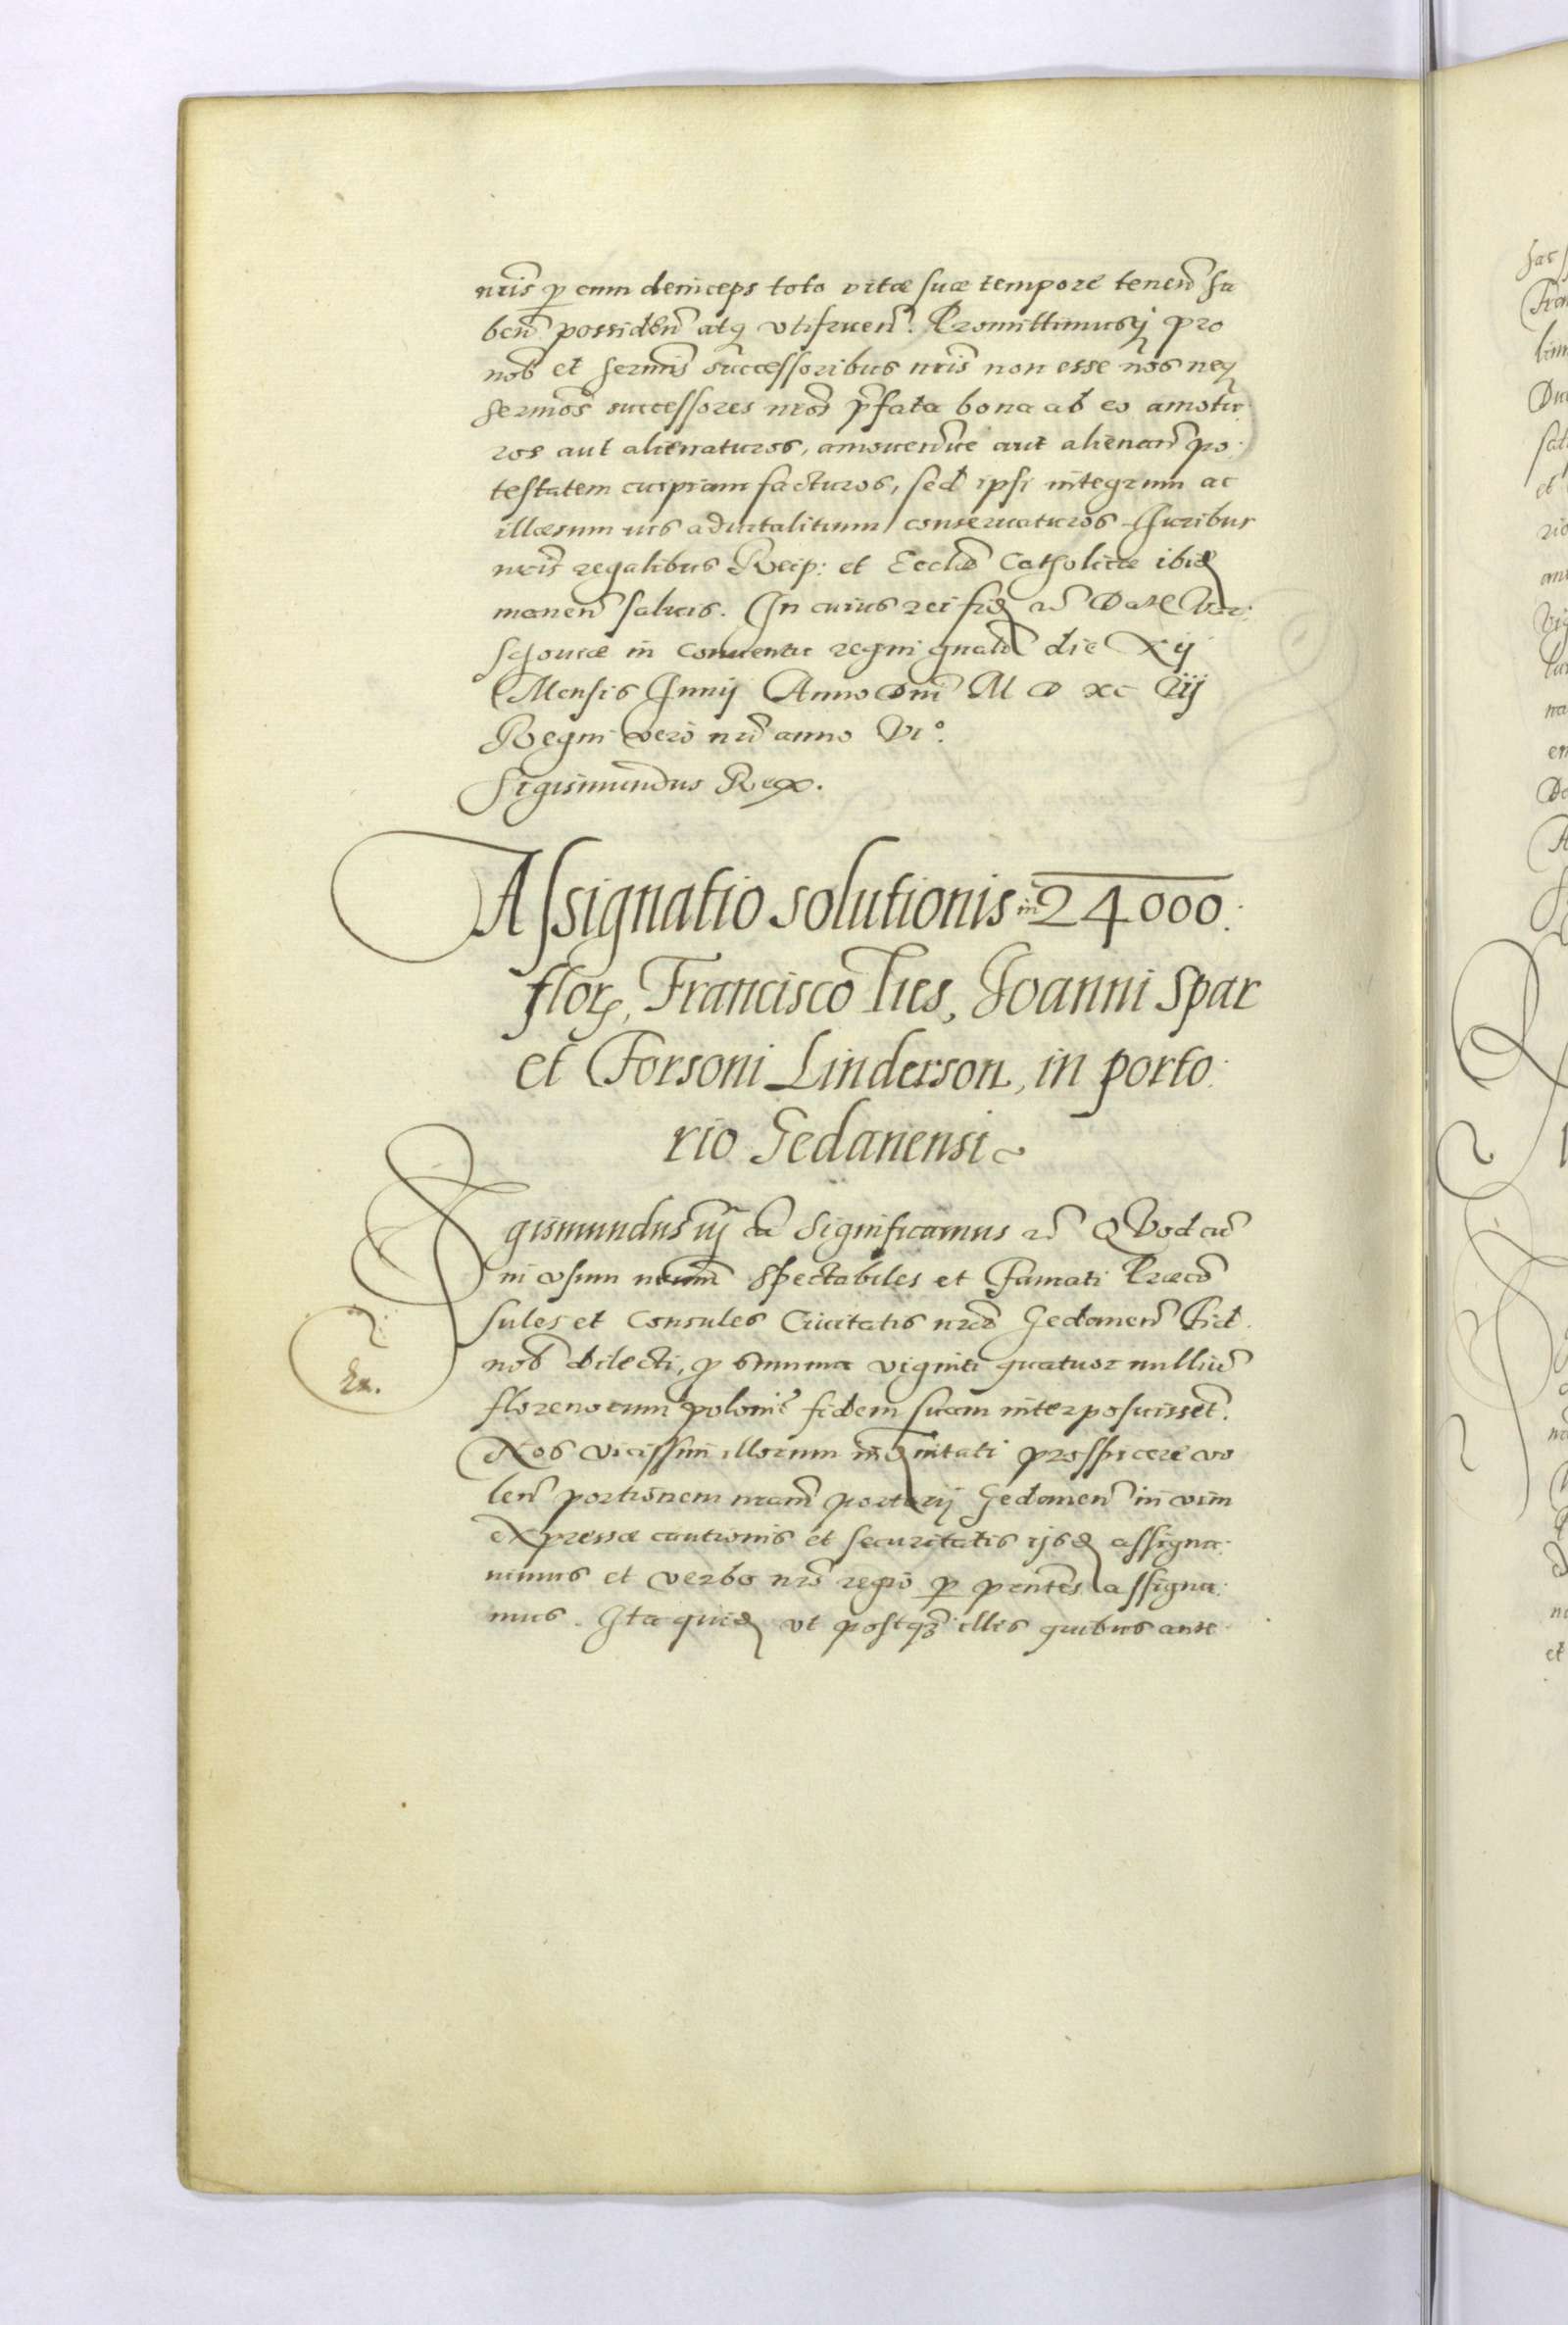 nris p eum deinceps toto vitæ suæ tempore tenen ha
ben possiden atq utifruen. Promittimusq pro
nob et sermis successoribus nris non esse nos neq
sermos successores nros pfata bona ab eo amotu
ros aut alienaturos, amouendiue aut alienan po
testatem cuipiam facturos, sed ipsi integrum ac
illæsum ius aduitalitium conseruaturos Juribus
nris regalibus Reip: et Eccliæ Catholicæ ibid
manen saluis. In cuius rei fid &c Dat Var
schouiæ in conuentu regni gnali die Xij
Mensis Junij Anno Dni M D xc iij
Regni vero nri anno VIº.
Sigismundus Rex.
Assignatio solutionis in 24000.
flor, Francisco Ties, Joanni Spar
et Forsoni Linderson, in porto
rio Gedanensi
Sigismundus iij &a Significamus &c QVod cu
in vsum nrum Spectabiles et Famati Præco
sules et Consules Ciuitatis nræ Gedanen Fid.
nob dilecti, p summa viginti quatuor milliu
florenorum polonic fidem suam interposuisset.
Nos vicissim illorum indenitati prospicere vo
len portionem nram portorij Gedanen in vim
expressæ cautionis et securitatis ijsd assigna
uimus et verbo nro regio p pntes assigna
mus. Ita quid ut postq illis quibus ante